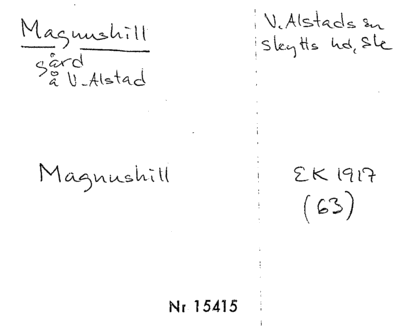 Magnushill
gård
å V. Alstad
V. Alstads sn
Skytts hd, Sk
Magnushill
EK 1917
(63)
Nr 15415